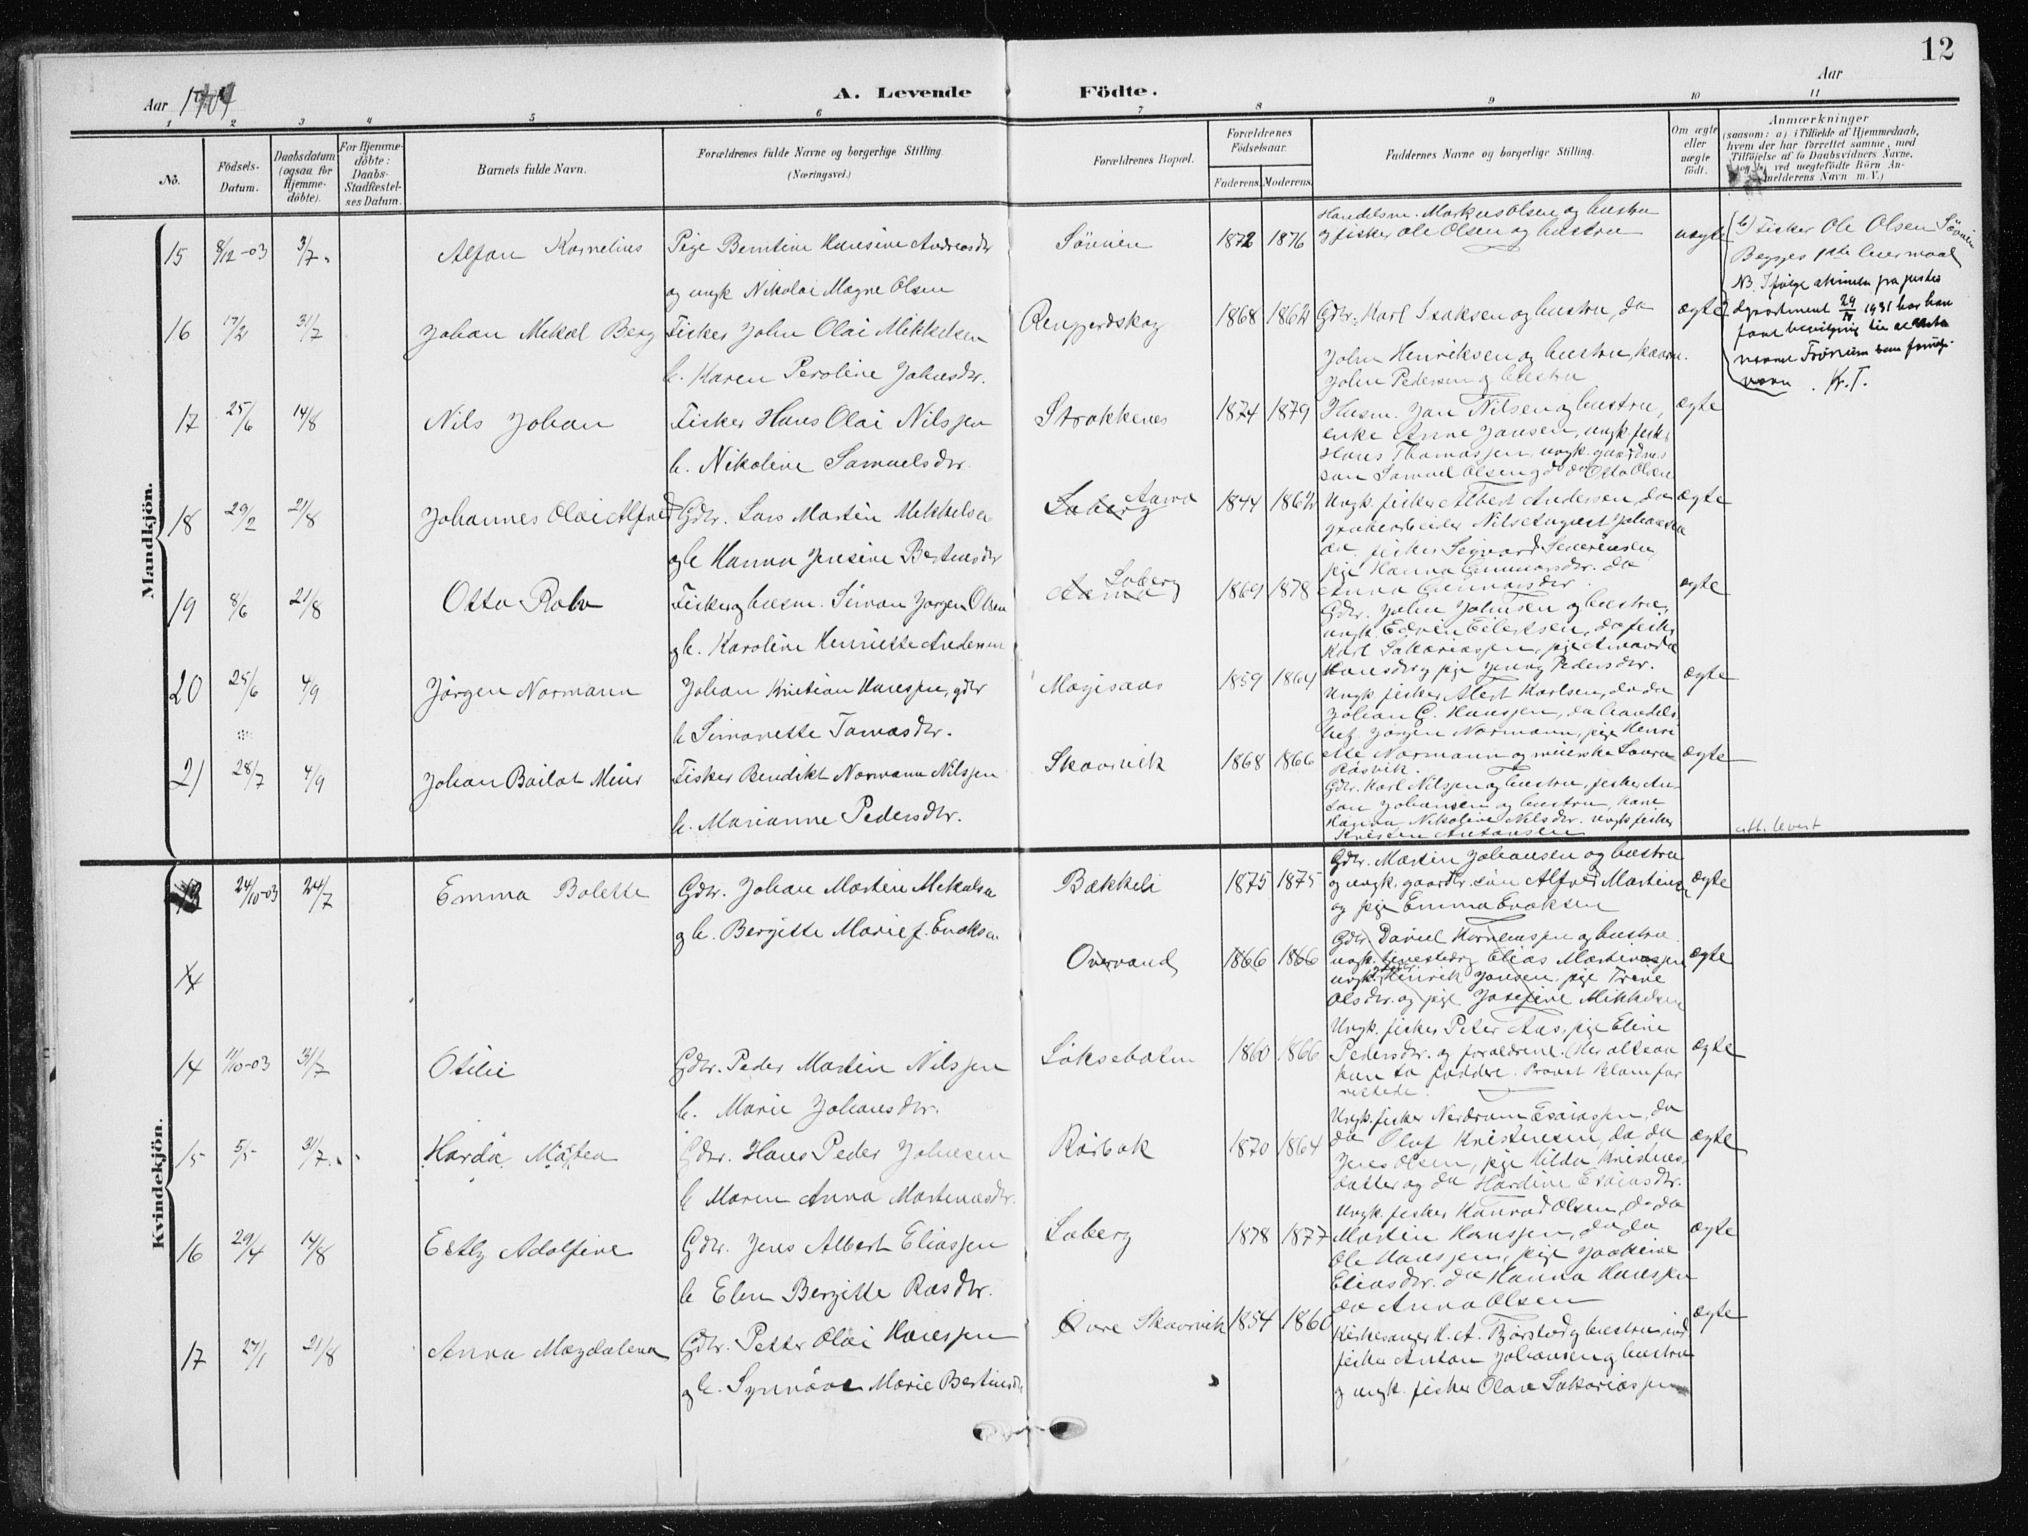 12
Aar 1904
A. Levende Födte.
Aar
1 2 3 4 5 6 7 8 9 10 11
No.
Födsels-Datum.
Daabsdatum (ogsaa for Hjemme-döbte).
For Hjemme-döbte: Daabs-Stadfestel-ses Datum.
Barnets fulde Navn.
Forældrenes fulde Navne og borgerlige Stilling. (Næringsvei.)
Forældrenes Bopæl.
Forældrenes Födselsaar.
Faderens. Moderens.
Faddernes Navne og borgerlige Stilling.
Om ægte eller uægte födt.
Anmærkninger
(saasom: a) i Tilfælde af Hjemmedaab, hvem der har forrettet samme, med Tilföielse af to Daabsvidners Navne, og b) ved uægtefödte Börn Anmelderens Navn m. V.)
Mandkjön.
15 8/12-03 3/7 Alfon Kornelius Pige Berntine Hansine Andreasdtr
og ungk Nikolai Magne Olsen
Sörvien 1872 1876
Handelsm. Markus Olsen og hustru
og fisker Ole Olsen og hustru
uægte
b) Fisker Ole Olsen Sörvien
Begges 1ste leiermaal
16 17/2 31/7 Johan Mekal Berg Fisker John Olai Mikkelsen
h. Karen Peroline Johnsdtr.
1868 1864
Gdbr. Karl Isaksen og hustru, do
John Henriksen og hustru
John Pedersen og hustru
ægte
17 25/6 14/8 Nils Johan Fisker Hans Olai Nilssen
h. Nikoline Samuelsdtr.
Strokkenes 1874 1879
Husm. Jan Nilsen og hustru,
enke Anne Jansen, ungk. fisk.
Hans Thomassen, ungk. gaardm.
søn Samuel Olsen og do do Otto Olsen
ægte
18 29/2 21/8 Johannes Olai Alfred Gdbr. Lars Martin Mikkelsen
og h Hanna Jensine Berteusdtr
Laberg Aana 1844 1862
Ungk. fisker Albert Andersen, do
grubearbeider Nils August Johansen
do. fisker Signard
pige Hanna Gunnarsdtr. do
Anna Gunnarsdtr.
ægte
19 8/6 21/8 Otto Rolv Fisker og husm. Simon Jørgen Olsen
og h. Karoline Henriette Andersen
Aana Laberg 1869 1878
Gdbr. John Johnsen og hustru,
ungk. Edvin Eilertsen, do fisk.
Karl Sakariassen, pige Amanda
Hansdtr og pige Jenny Pedersdtr.
ægte
20 25/6 4/9 Jørgen Normann Johan Kristian Hanssen, gdbr
h Simonette Tomasdtr.
1859 1864
Ungk. fisker Albert Karlsen, do do
Johan C. Hanssen, do handels
bet. Jørgen Normann, pige Henri
ette Normann og Laura
Røsvik.
ægte
21 28/7 4/9 Johan Fisker Bendikt Normann Nilssen
h. Marianne Pedersdtr.
Skavrvik 1868 1866
Gdbr. Karl Nilssen og hustru, fisker An-
ton Johansen og hustru, kone
Hanna Nikoline Nilsdtr. ungk fisker
Kristen Antonsen
ægte
att. levert
Kvindekjön.
13 24/10-03 24/7 Emma Bolette Gdbr. Johan Martin Mekalsen
og h. Bergitte Marie f. Enoksen
Bækkeli 1875 1875
Gdbr. Martin Johansen og hustru
og ungk. gaardbr.søn Alfred Martinsen
og pige Emma Enoksen
ægte
14 Overvand 1866 1866
Gdbr. Daniel Korneliussen og hustru
ungk. Elias Martinussen
ungk. Henrik Jansen, pige Trine
Olsdtr. og pige Josefine Mikkelsen
ægte
14 11/10-03 31/7 Otilie Gdbr. Peder Martin Nilssen
h. Marie Johansdtr.
Løksebotn 1860 1866
Ungk. fisker Peter Aas, pige Eline
Pedersdtr. og forældrene. (Her altsaa
kun to faddere. Provst Klem for
rettede.
ægte
15 5/5 31/7 Harda Gdbr. Hans Peder Johnsen
h Maren Anna Martinusdtr.
Rørbak 1870 1864
Ungk. fisker Nerdrum Esaiassen, do
do Oluf Kristensen, do do
Jens Olsen, pige Hilda Kristines-
datter og do Hardine Esaiasdtr.
ægte
16 29/4 14/8 Adolfine Gdbr. Jens Albert Eliassen
h Elen Bergitte Rasdtr.
Laberg 1878 1877
Ungk. fisker Konrad Olsen, do do
Martin Hanssen, do do
Ole Hanssen, pige Joakine
Eliasdtr. do Hanna Hanssen
do Anna Olsen
ægte
17 27/1 21/8 Anna Magdalena Gdbr. Petter Olai Hanssen
og h. Synnøve Marie Bertinsdtr
Øvre Skavrvik 1854 1860
Kirkesanger H. A. Bjørstad og hustru, ind
fisker Anton Johansen og hustru
og ungk. fisker Olav Sakariassen
ægte
NB. Ifølge skrivelse fra justis
departement 29/IV 1931 har han
faat bevilgning til at anta
navnet som familje-
navn. Kr. T.